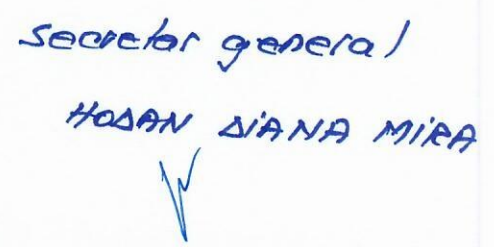 Secretar general
HODAN DIANA MIRA